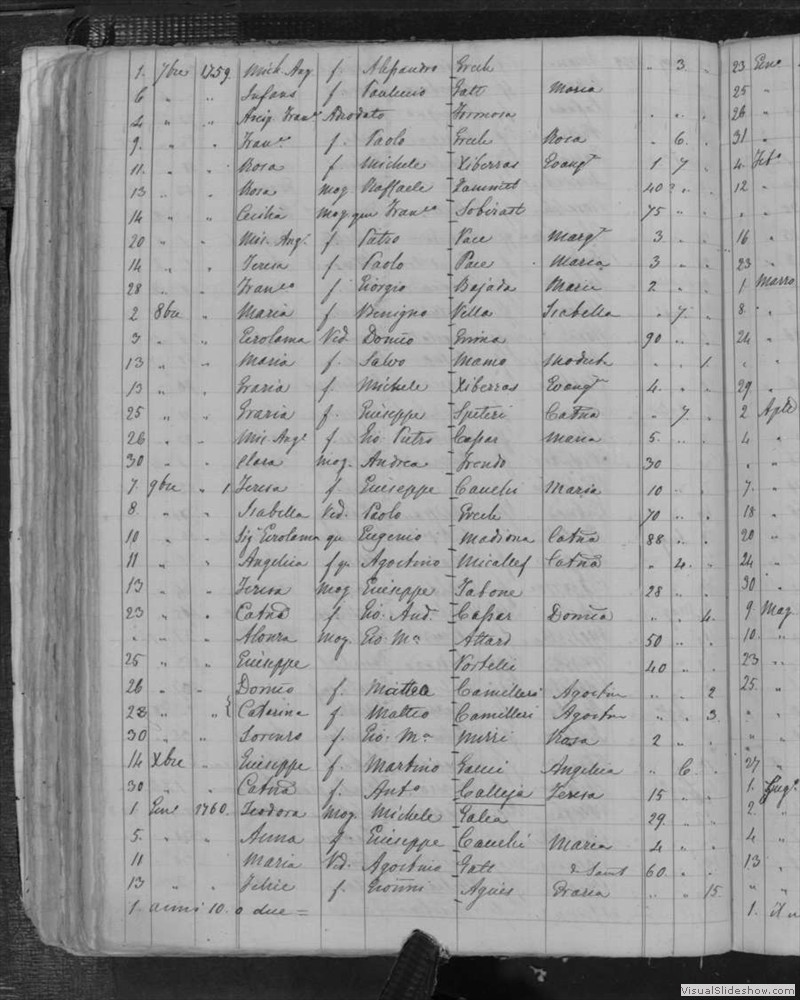 1. 7bre 1759. Mich. Ang. f. Alessandro Grech " 3. .
6 " " Infans f. Paulino Gatt Maria
4 " " Arcip. Franco Adeodato Formosa " . .
9. " " Franco f. Paolo Grech Rosa " 6. .
11. " " Rosa f. Michele Xiberras Evangta 1 7 .
13 " " Rosa mog. Raffaele Zammit 40 ? " .
14 " " Cecilia mog qm Franco 75 " .
20 " " Mic. Angl. f. Pietro Pace Margta 3 . .
14 " " Teresa f. Paolo Pace Maria 3 . .
28 " " Franco f. Giorgio Bajada Maria 2 . .
2 8bre " Maria f Benigno Vella Isabella " 7. .
3 " " Gerolama Vid. Domco 90 . .
13 " " Maria f. Salvo Mamo Modesta . . 1.
13 " " Grazia f. Michele Xiberras Evangta 4. . .
25 " " Grazia f. Giuseppe Spiteri Catna " 7. .
26 " " Mic. Angl f. Gio. Pietro Cassar Maria 5. " .
30 " " Clara mog. Andrea Frendo 30
7. 9bre " 1 Teresa f Giuseppe Cauchi Maria 10 . .
8. " " Isabella Ved. Paolo Grech 70 " .
10 " " Sigra Gerolama qm Eugenio Madiona Catna 88 " .
11 " " Angelica f qm Agostino Micallef Catna " 4. .
13 " " Teresa mog Giuseppe Tabone 28 " .
23 " " Catna f. Gio. And. Cassar Domca " . 4.
" " " Alonza mog. Gio. Ma Attard 50 " .
25 " " Giuseppe Portelli 40 . .
26 " " Domco f. Mattea Camilleri Agostna " . 2
28 " " { Caterina f. Matteo Camilleri Agostna " . 3.
30 " " Lorenzo f. Gio. Ma Rosa 2 " .
14 Xbre " Giuseppe f. Martino Gauci Angelica " 6. .
30 " " Catna f. Anto Calleja Teresa 15 . .
1 Genro 1760. Teodora Mog. Michele Galea 29. . .
5. " " Anna f Giuseppe Cauchi Maria 4 " .
11 Maria Vid. Agostino Gatt 60. . .
13 " " Felice f. Gionni Agius Grazia " . 15
1. anni 10. o due =
23 Geno
25 "
26 "
31 "
4. Febo
12 "
" "
16 "
23 "
1 Marzo
8. "
24 "
" "
29 "
2 Aple
4 "
" "
7. "
18 "
20 "
24 "
30 "
9. Mag
10. "
23 "
25. "
" "
" "
27 "
1. Giugo
2. "
4 "
13 "
" "
1.
VisualSlideshow.com